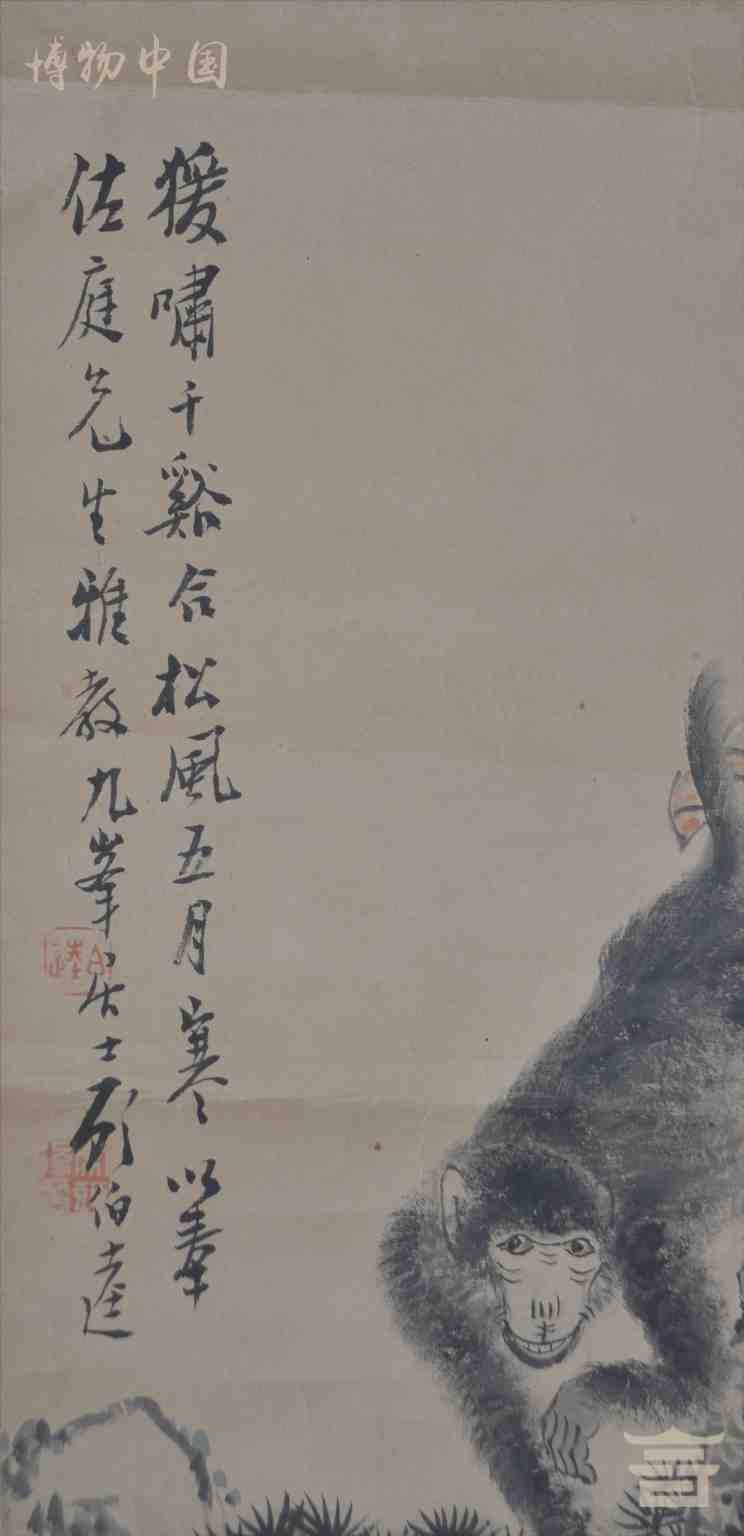 博物中国
猨嘯千谿合松風五月寒以奉
佐庭先生雅教九峯居士顾伯逵